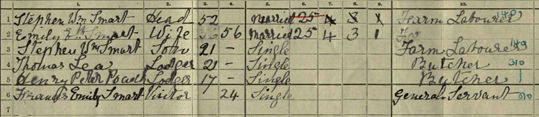 1 Stephen Wm Smart Head 52 Married 25 4 3 1 Farm Labourer 140
2 Emily Smart Wife 56 Married 25 4 3 1
3 Stephen Smart Son 21 - Single Farm Labourer 149
4 Thomas Lea Lodger 21 - Single Butcher 310
5 Henry Peter Lodger 17 - Single Butcher
6 Francis Emily Smart Visitor 24 Single General Servant
7